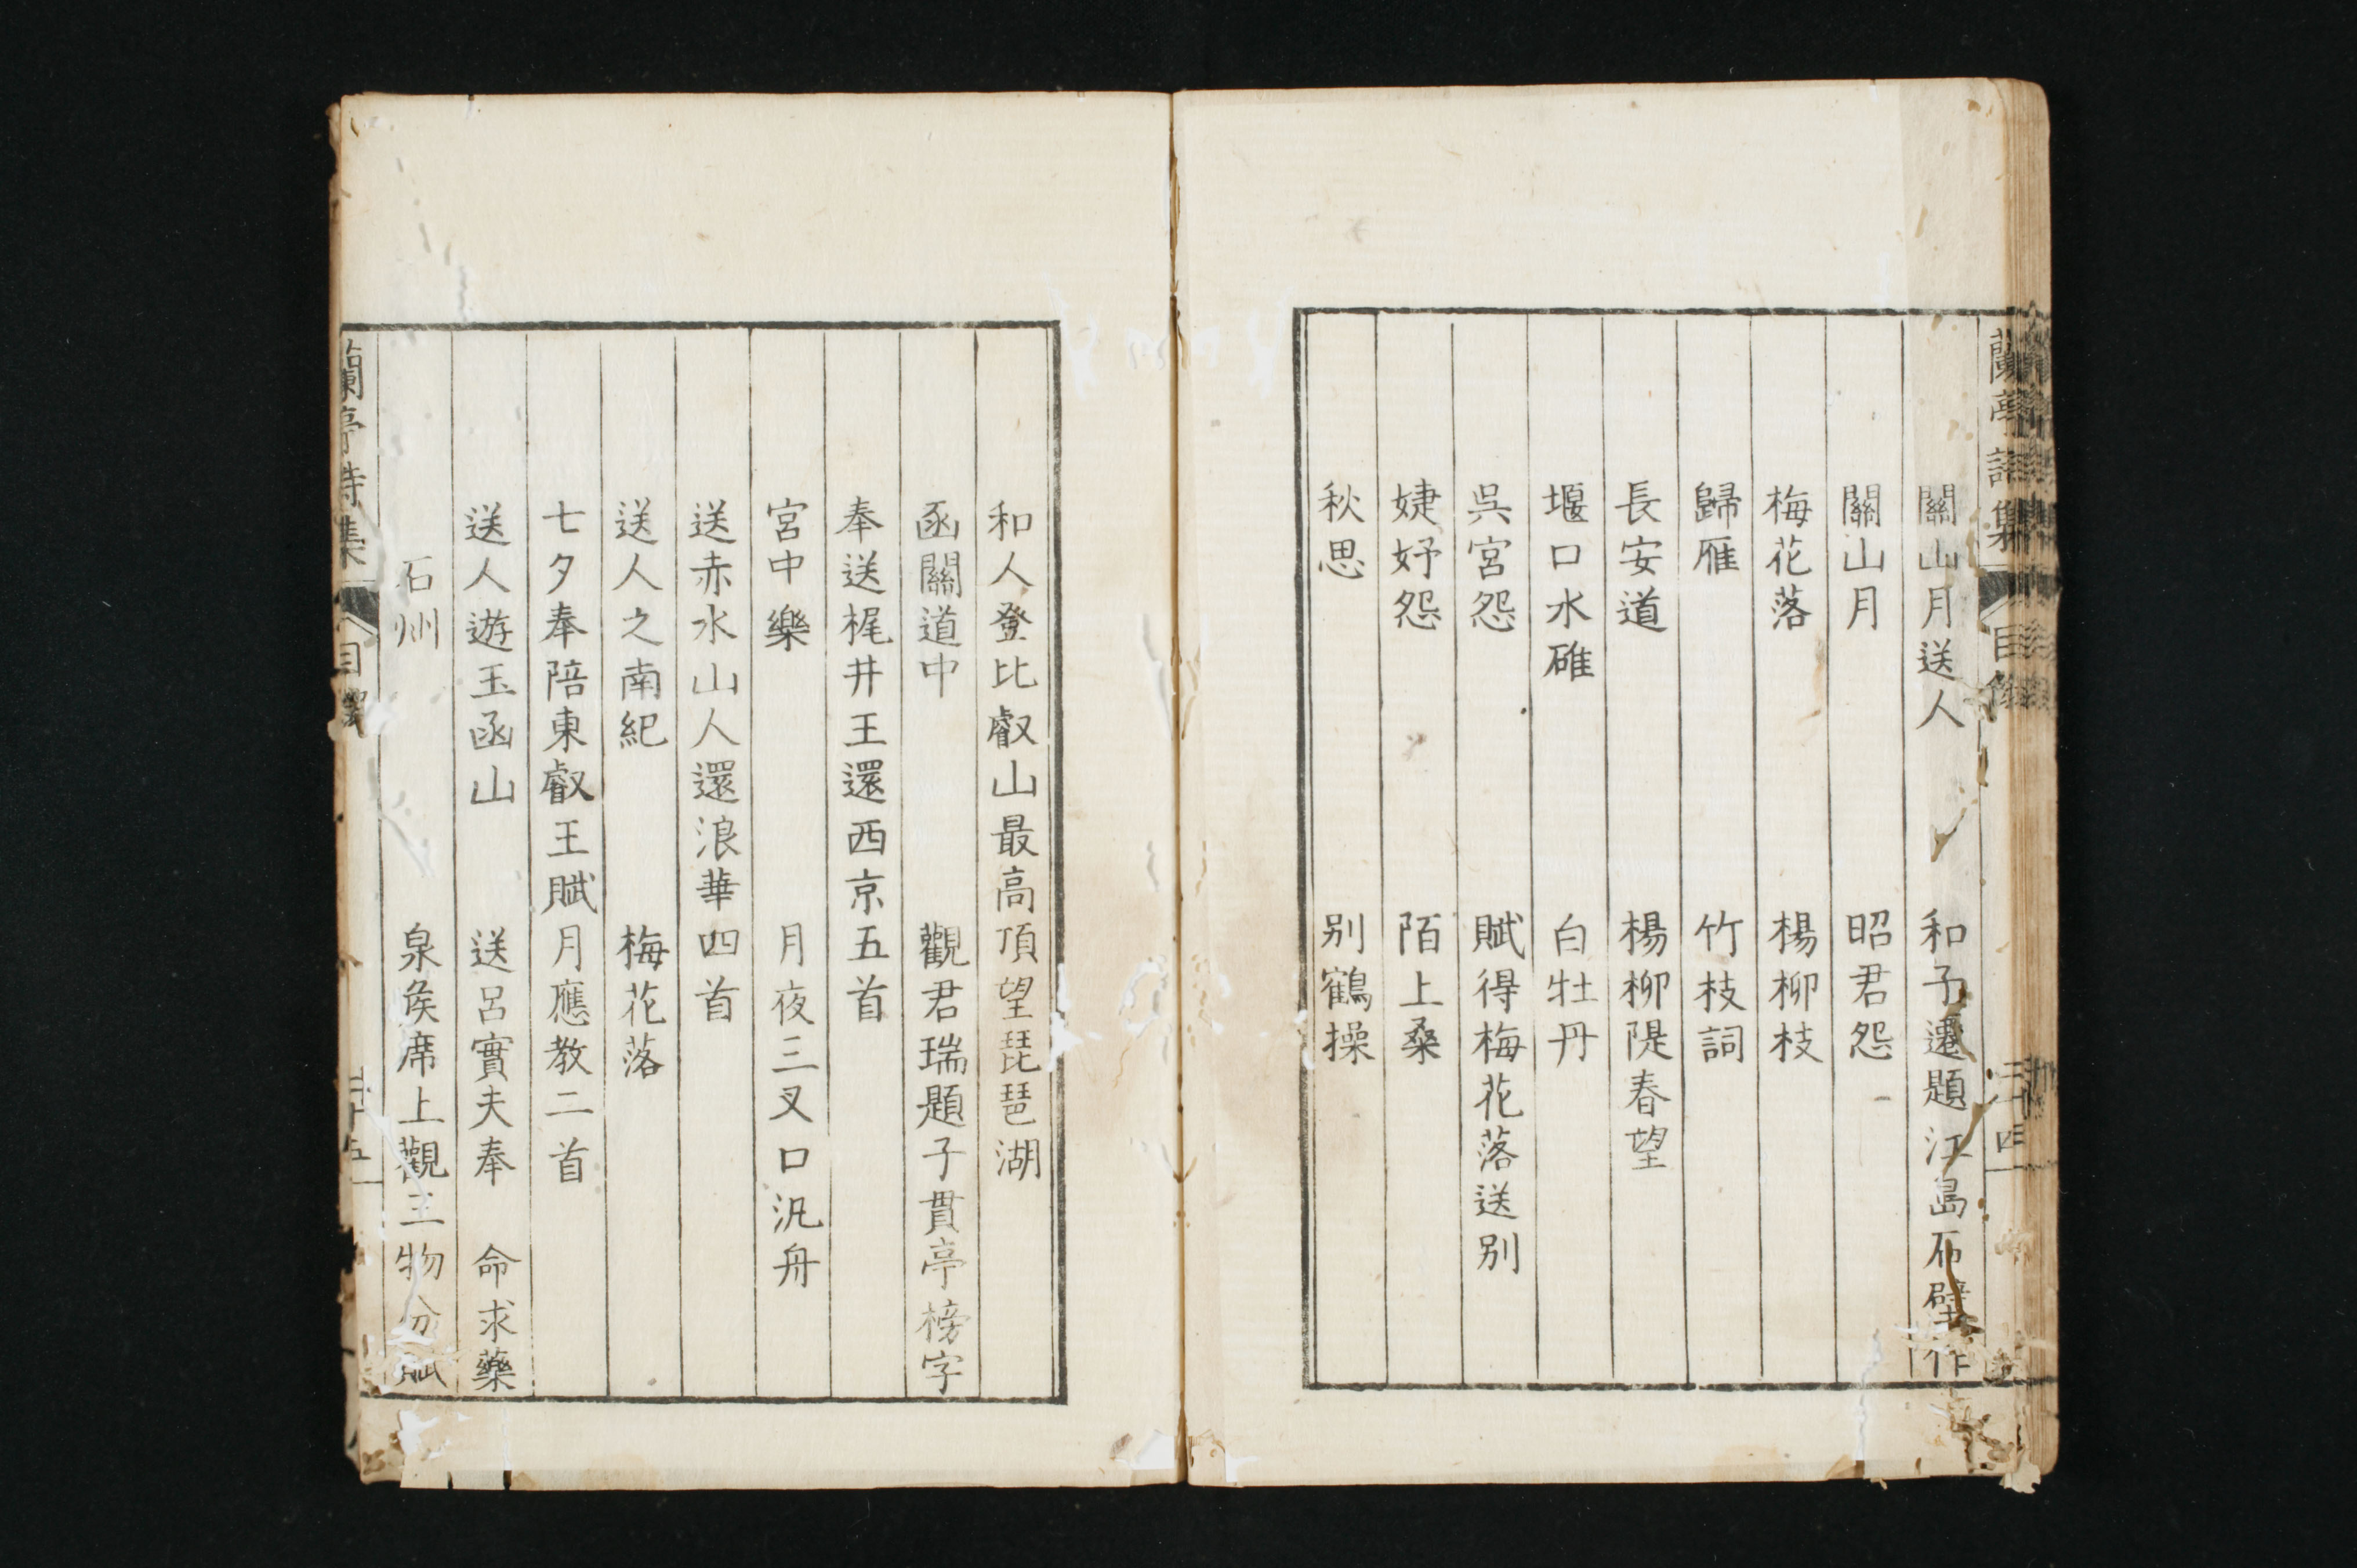 關山月送人 和子遷題江島石壁作
關山月 昭君怨
梅花落 楊柳枝
歸雁 竹枝詞
長安道 楊柳隄春望
堰口水碓 白牡丹
吳宮怨 賦得梅花落送別
婕妤怨 陌上桑
秋思 別鶴操
和人登比叡山最高頂望琵琶湖
函關道中 觀君瑞題子貫亭榜字
奉送梶井王還西京五首
宮中樂 月夜三叉口汎舟
送赤水山人還浪華四首
送人之南紀 梅花落
七夕奉陪東叡王賦月應教二首
送人遊玉函山 送呂實夫奉 命求藥
石州 泉侯席上觀三物分賦
蘭亭詩集 目錄